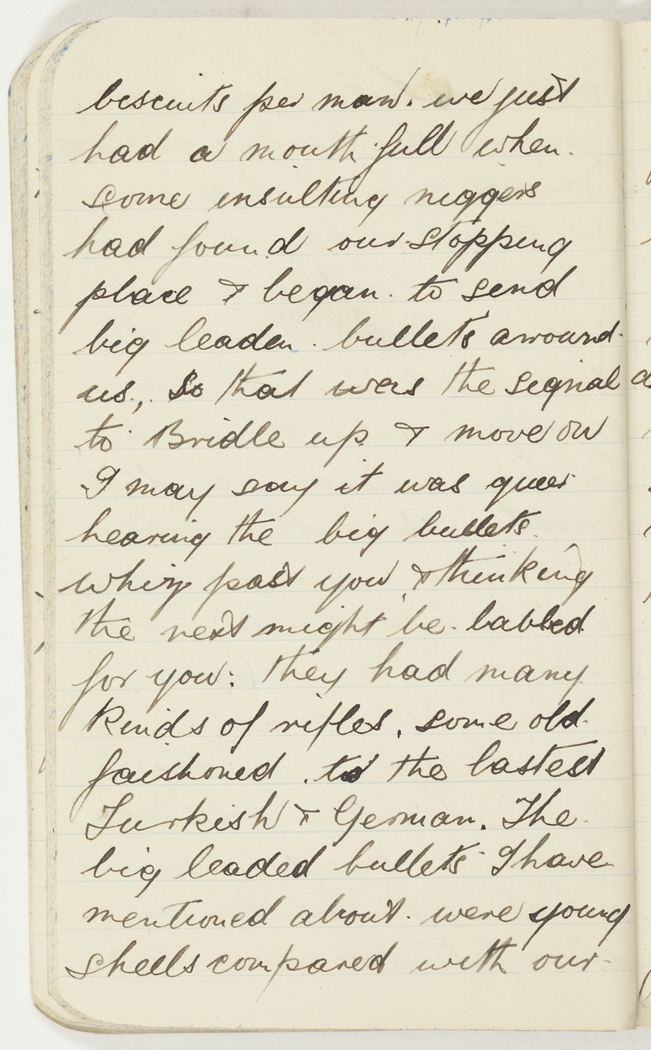 biscuits per man. we just
had a mouth full when.
some insulting niggers
had found our stopping
place & began. to send
big leaden. bullets arround.
us., So that was the signal
to Bridle up & move on
I may say it was queer
hearing the big bullets.
whiz past you & thinking
the next might be labled
for you: they had many
Kinds of rifles, some old
faishoned. to the lastest
Turkish & German. The
big leaded bullets I have
mentioned about. were young
shells compared with our